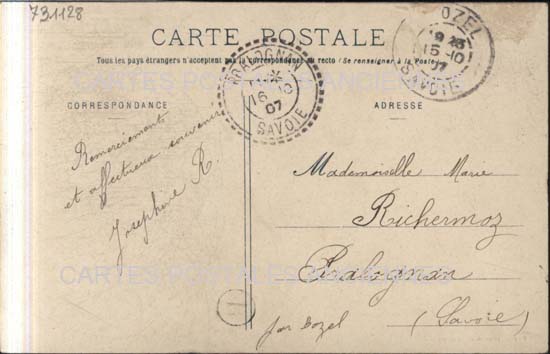 731128
CARTE POSTALE
Tous les pays étrangers n'acceptent pas la correspondance au recto (Se renseigner à la Poste)
CARTES POSTALES ANCIENNES
CORRESPONDANCE
ADRESSE
PRALOGNAN
*
16 -10
07
SAVOIE
BOZEL
15 -10
07
SAVOIE
Remerciements
et affectueux souvenirs
Joséphine R.
Mademoiselle Marie
Richermoz
Pralognan
par Bozel (Savoie)
CARTES POSTALES ANCIENNES